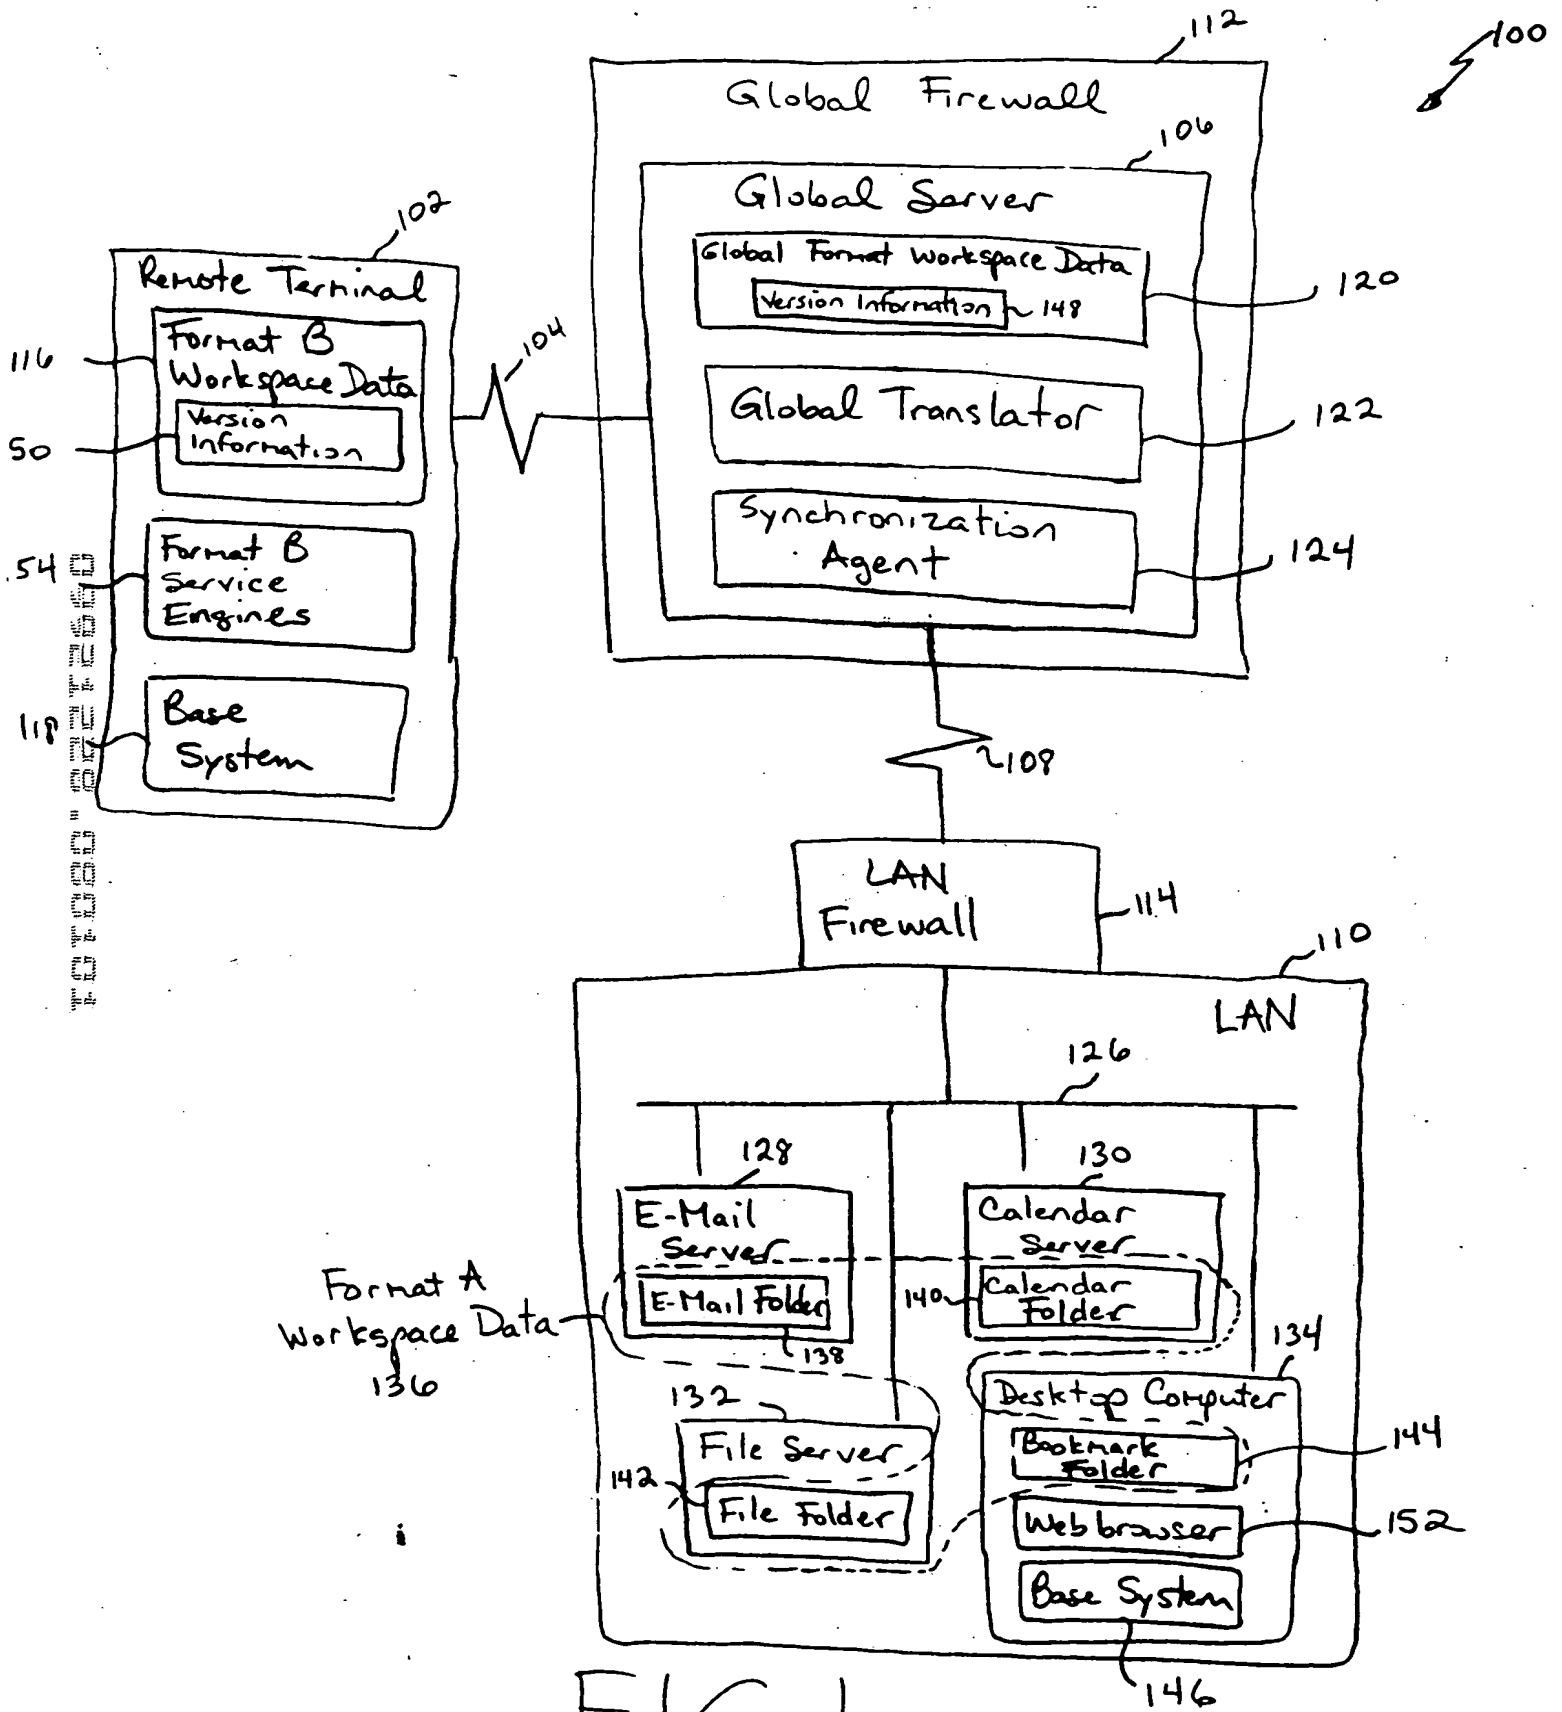 100
112
Global Firewall
106
Global Server
Global Format Workspace Data
Version Information
148
120
Global Translator
122
Synchronization
Agent
124
102
Remote Terminal
Format B
Workspace Data
116
Version
Information
50
Format B
Service
Engines
54
Base
System
118
104
108
LAN
Firewall
114
110
LAN
126
128
E-Mail
Server
E-Mail Folder
138
130
Calendar
Server
140
Calendar
Folder
Format A
Workspace Data
136
132
File Server
142
File Folder
134
Desktop Computer
Bookmark
Folder
144
Web browser
152
Base System
146